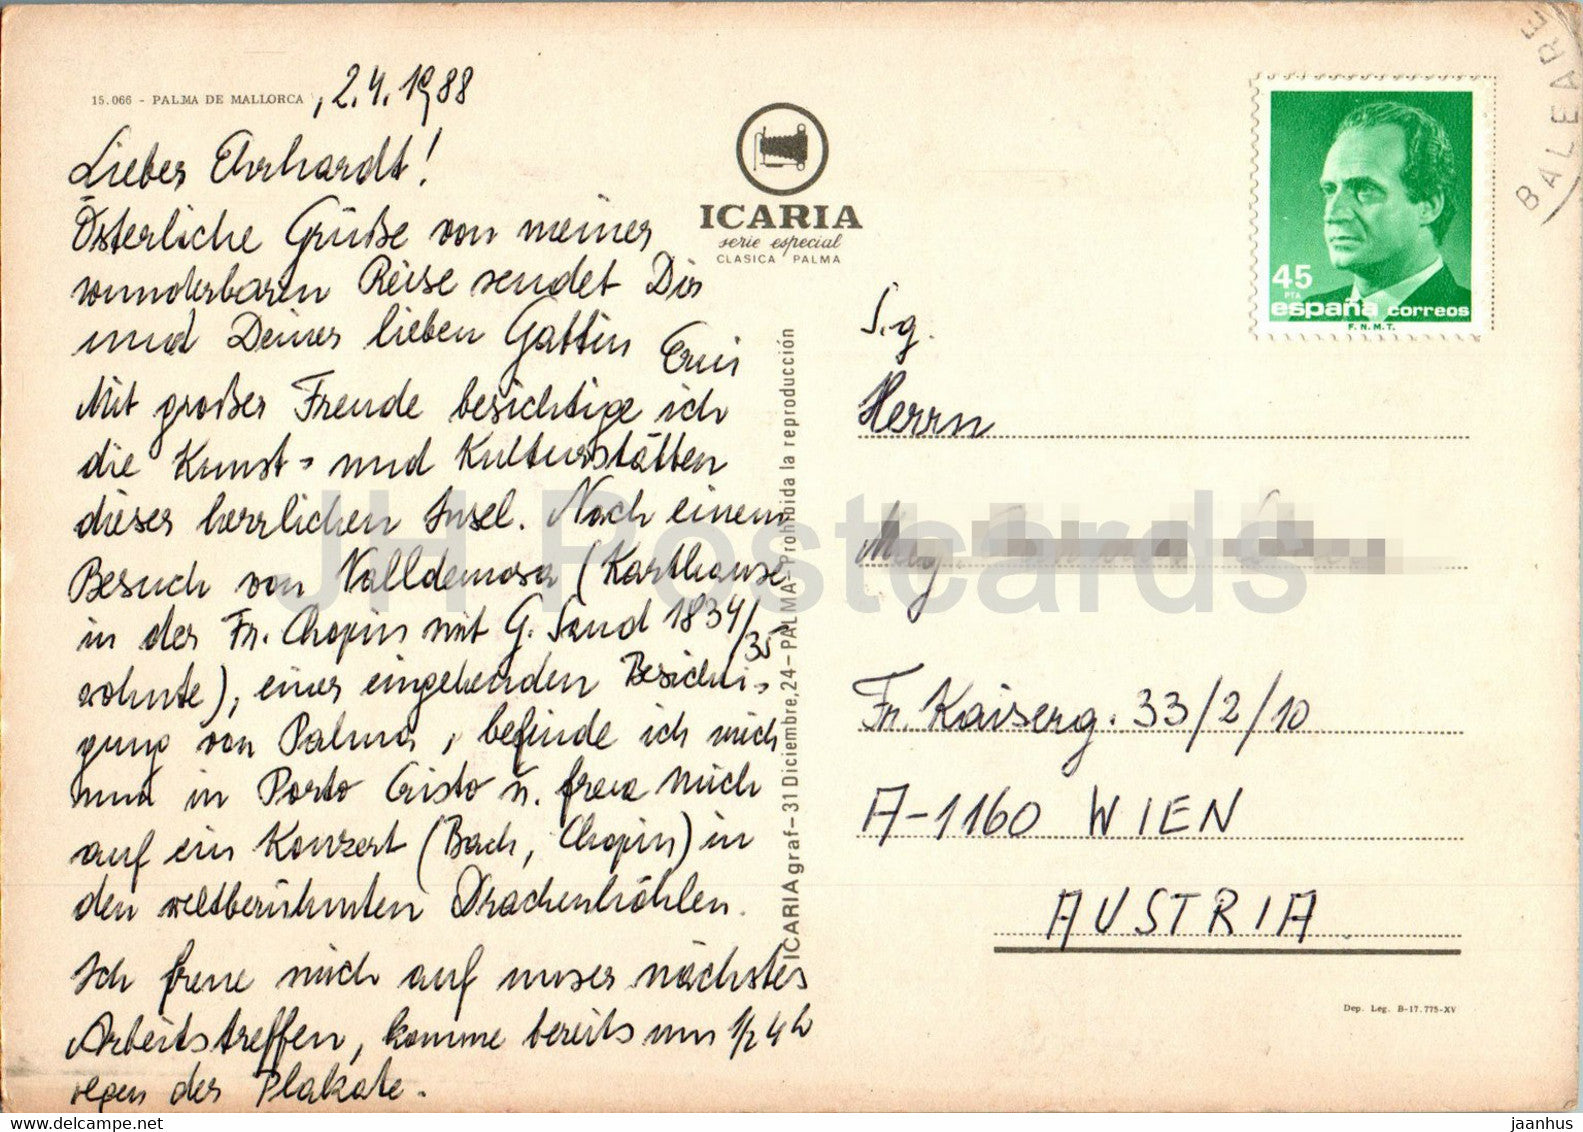 15.066 - PALMA DE MALLORCA , 2.4.1988
Lieber Ehrhardt!
Österliche Grüße von meiner
wunderbaren Reise sendet Dir
und Deiner lieben Gattin
Mit großer Freude besichtige ich
die Kunst- und Kulturstätten
dieser herrlichen Insel. Nach einem
Besuch von Valldemosa (Karthause
in der Fr. Chopin mit G. Sand 1834/35
wohnte), einer eingehenden Besichti-
gung von Palma, befinde ich mich
nun in Porto Cristo u. freue mich
auf ein Konzert (Bach, Chopin) in
den weltberühmten Drachenhöhlen.
Ich freue mich auf unser nächstes
Arbeitstreffen, komme bereits um 1/2 4 h
wegen der Plakate.
ICARIA
serie especial
CLASICA PALMA
ICARIA graf - 31 Diciembre, 24 - PALMA - Prohibida la reproducción
45
PTA
españa correos
F.N.M.T.
BALEARE
S.g.
Herrn
Mag.
Fr. Kaiserg. 33/2/10
A-1160 WIEN
AUSTRIA
Dep. Leg. B-17.775-XV
JH Postcards
www.delcampe.net
jaanhus